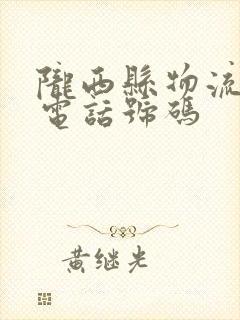 隴西縣物流
電話號碼
黄继光